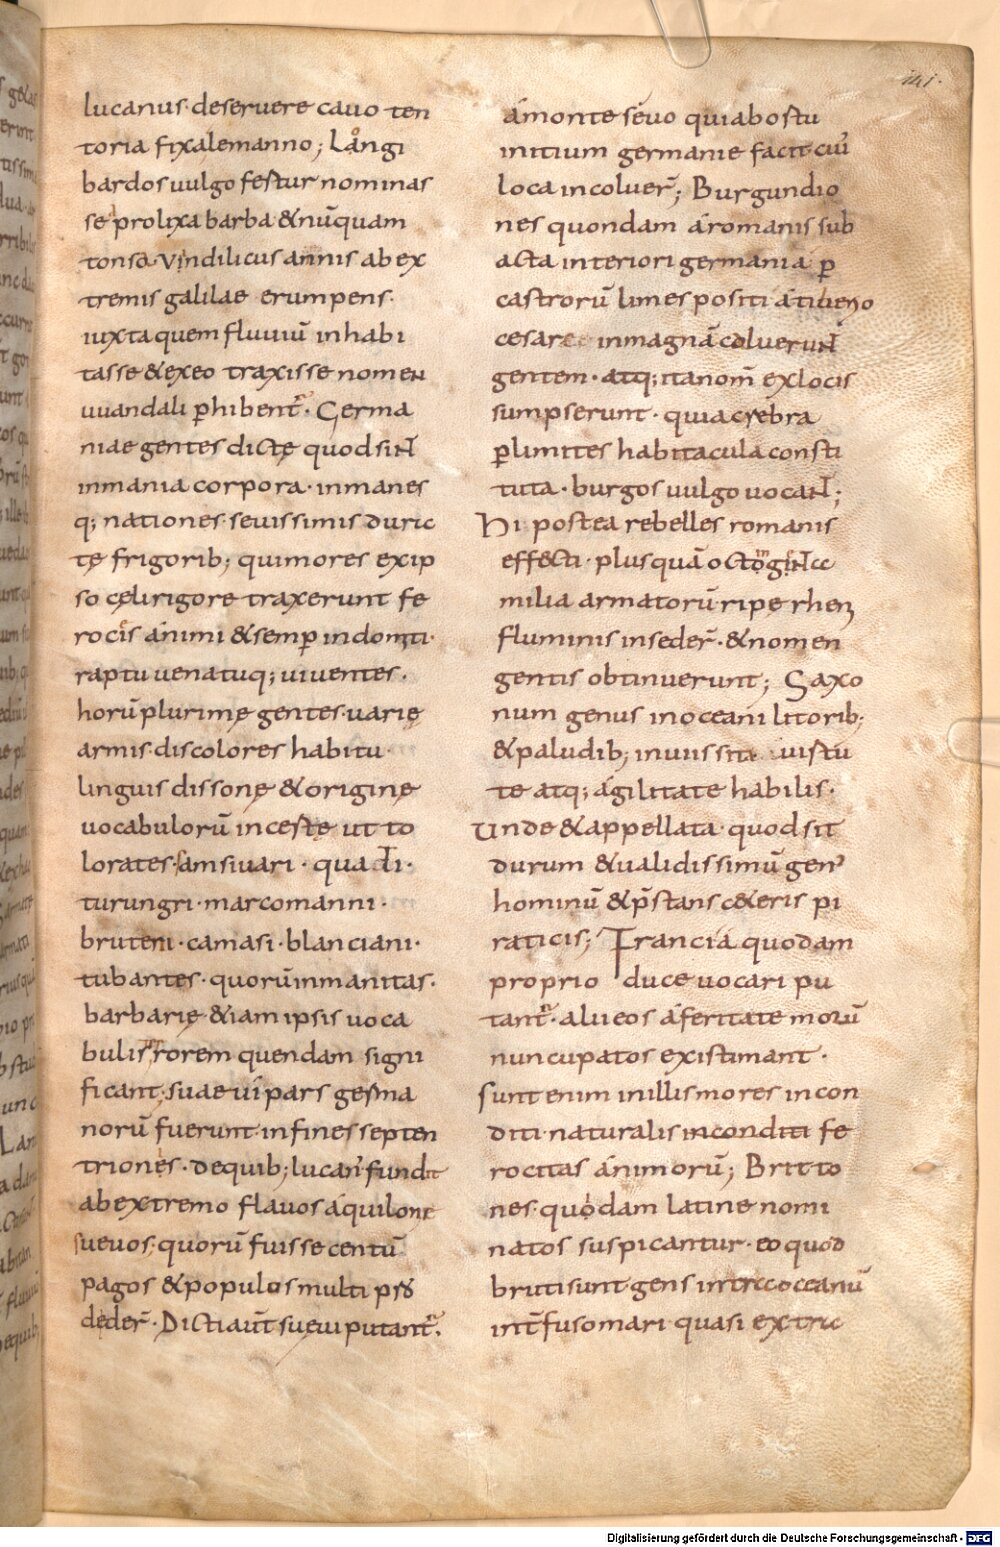 141.
lucanus· deseruere cauo ten
toria fixalemanno; Langi
bardos uulgo festur nominas
se prolixa barba &nūquam
tonsa· Vindilicus amnis abex
tremis galilae erumpens·
iuxta quem fluuiū inhabi
tasse &exeo traxisse nomen
uuandali phibent̄· Germa
niae gentes dictę quod sint
inmania corpora· inmanes
q; nationes· seuissimis duric
tę frigorib; qui mores exip
so cęli rigore traxerunt fe
rocis ánimi &semp indomiti·
raptu uenatuq; uiuentes·
horū plurimę gentes uarię
armis· discolores habitu·
linguis dissonę &originę
uocabulorū incestę ut to
lorates· amsiuari· quadi·
turungri· marcomanni·
bruteri· camasi· blanciani·
tubantes· quorū inmanitas·
barbarię &iam ipsis uoca
bulis rorem quendam signi
ficant; suaeui pars germa
norū fuerunt infines septen
triones· dequib; lucan' fundit
ab extremo flauos áquilone
sueuos; quorū fuisse centū
pagos &populos multi pro
deder̄· Dicti aut̄ sueui putant̄·
ámonte séuo qui abostu
initium germanie facit cui'
loca incoluer̄; Burgundio
nes quondam áromanis sub
acta interiori germania p
castrorū limes positi átiberio
cesare inmagnā coluerunt
gentem· atq; ita nom̄ exlocis
sumpserunt· quia crebra
plimites habitacula consti
tuta· burgos uulgo uocant;
Hi postea rebelles romanis
effecti· plusquā octoginta
milia armatorū ripe rheni
fluminis inseder̄· &nomen
gentis obtinuerunt; Saxo
num genus inoceani litorib;
&paludib; inuiis sitū uistu
te atq; ágilitate habilis·
Unde &appellata· quod sit
durum &ualidissimū gen'
hominū &p̄stans c&eris pi
raticis; Francia quodam
proprio duce uocari pu
tant̄· alii eos áferitate morū
nuncupatos existimant·
sunt enim inillis mores incon
diti· naturalis inconditi fe
rocitas ánimorū; Britto
nes· quodam latine nomi
natos suspicantur· eo quod
bruti sunt· gens intra oceanū
int̄fuso mari quasi extra
Digitalisierung gefördert durch die Deutsche Forschungsgemeinschaft - DFG